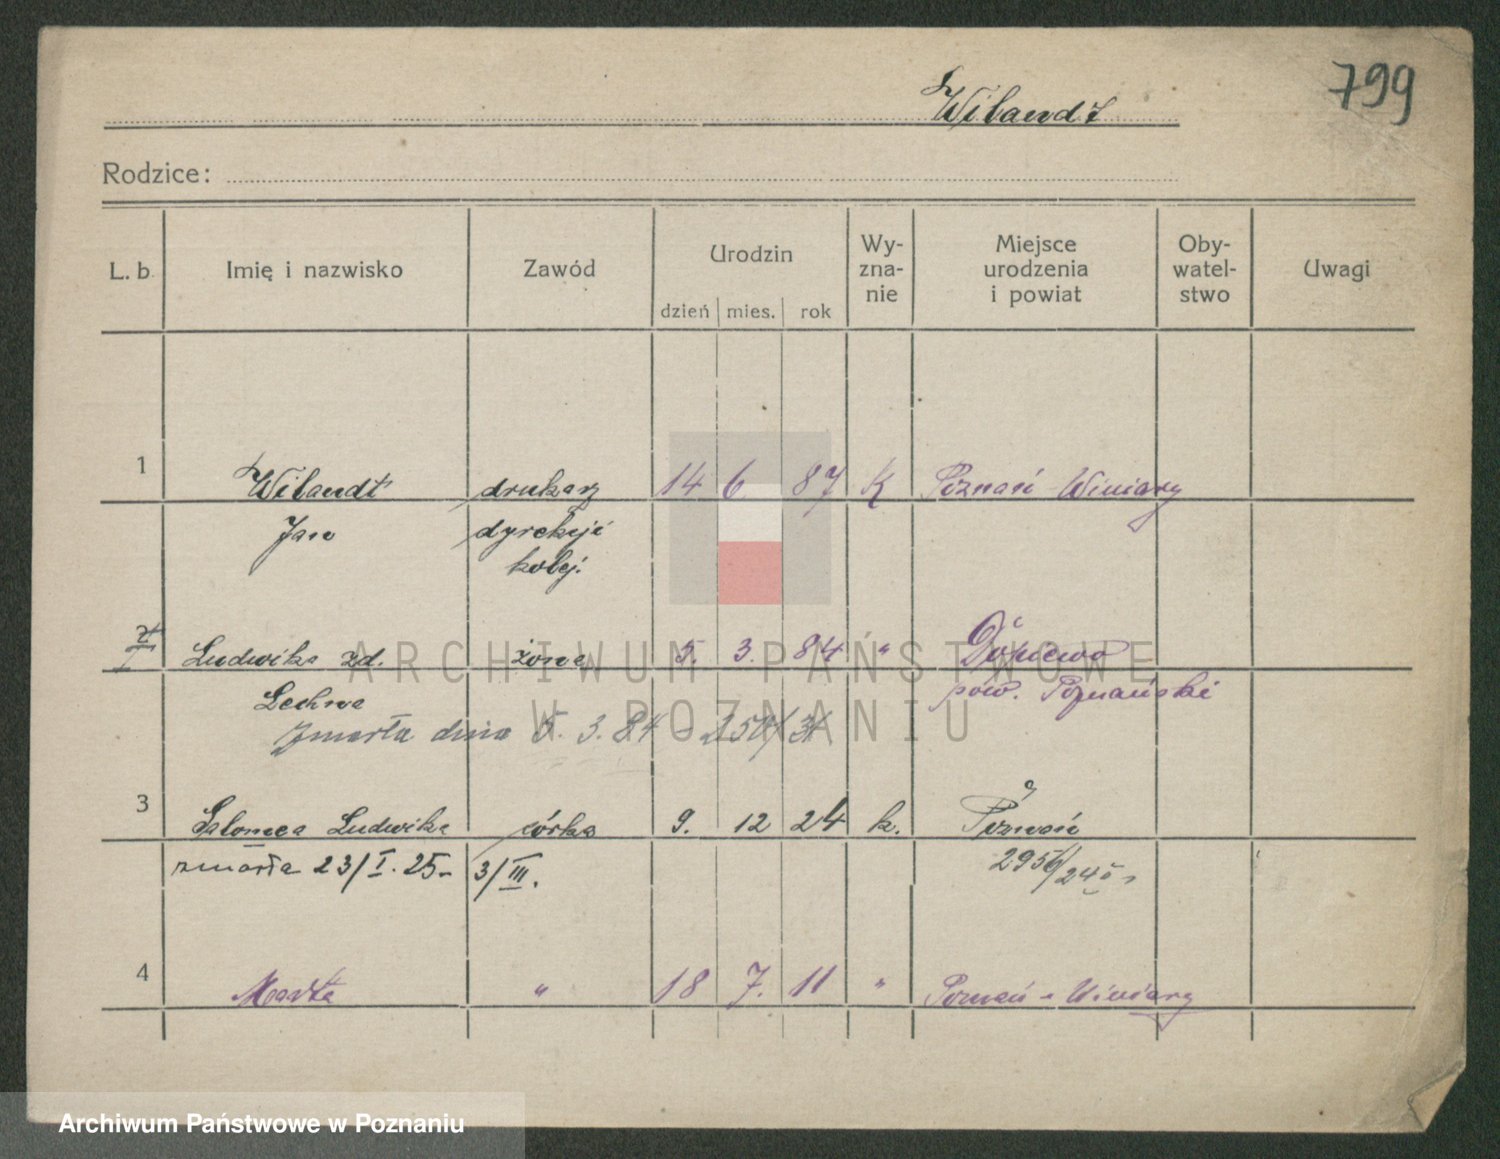 799
Wilandt
Rodzice:
L. b. Imię i nazwisko Zawód Urodzin Wy-zna-nie Miejsce urodzenia i powiat Oby-watel-stwo Uwagi
dzień mies. rok
1 Wilandt drukarz 14 6 87 K Poznań-Winiary
Jan dyrekcji
kolej.
2 Ludwika zd. żona 5. 3. 84 " Dopiewo
Lechna pow. Poznański
Zmarła dnia 5. 3. 84
3 Salomea Ludwika córka 9. 12 24 k. Poznań
zmarła 23/I. 25- 3/III. 2956/24
4 Marta " 18 7. 11 " Poznań - Winiary
ARCHIWUM PAŃSTWOWE
W POZNANIU
Archiwum Państwowe w Poznaniu